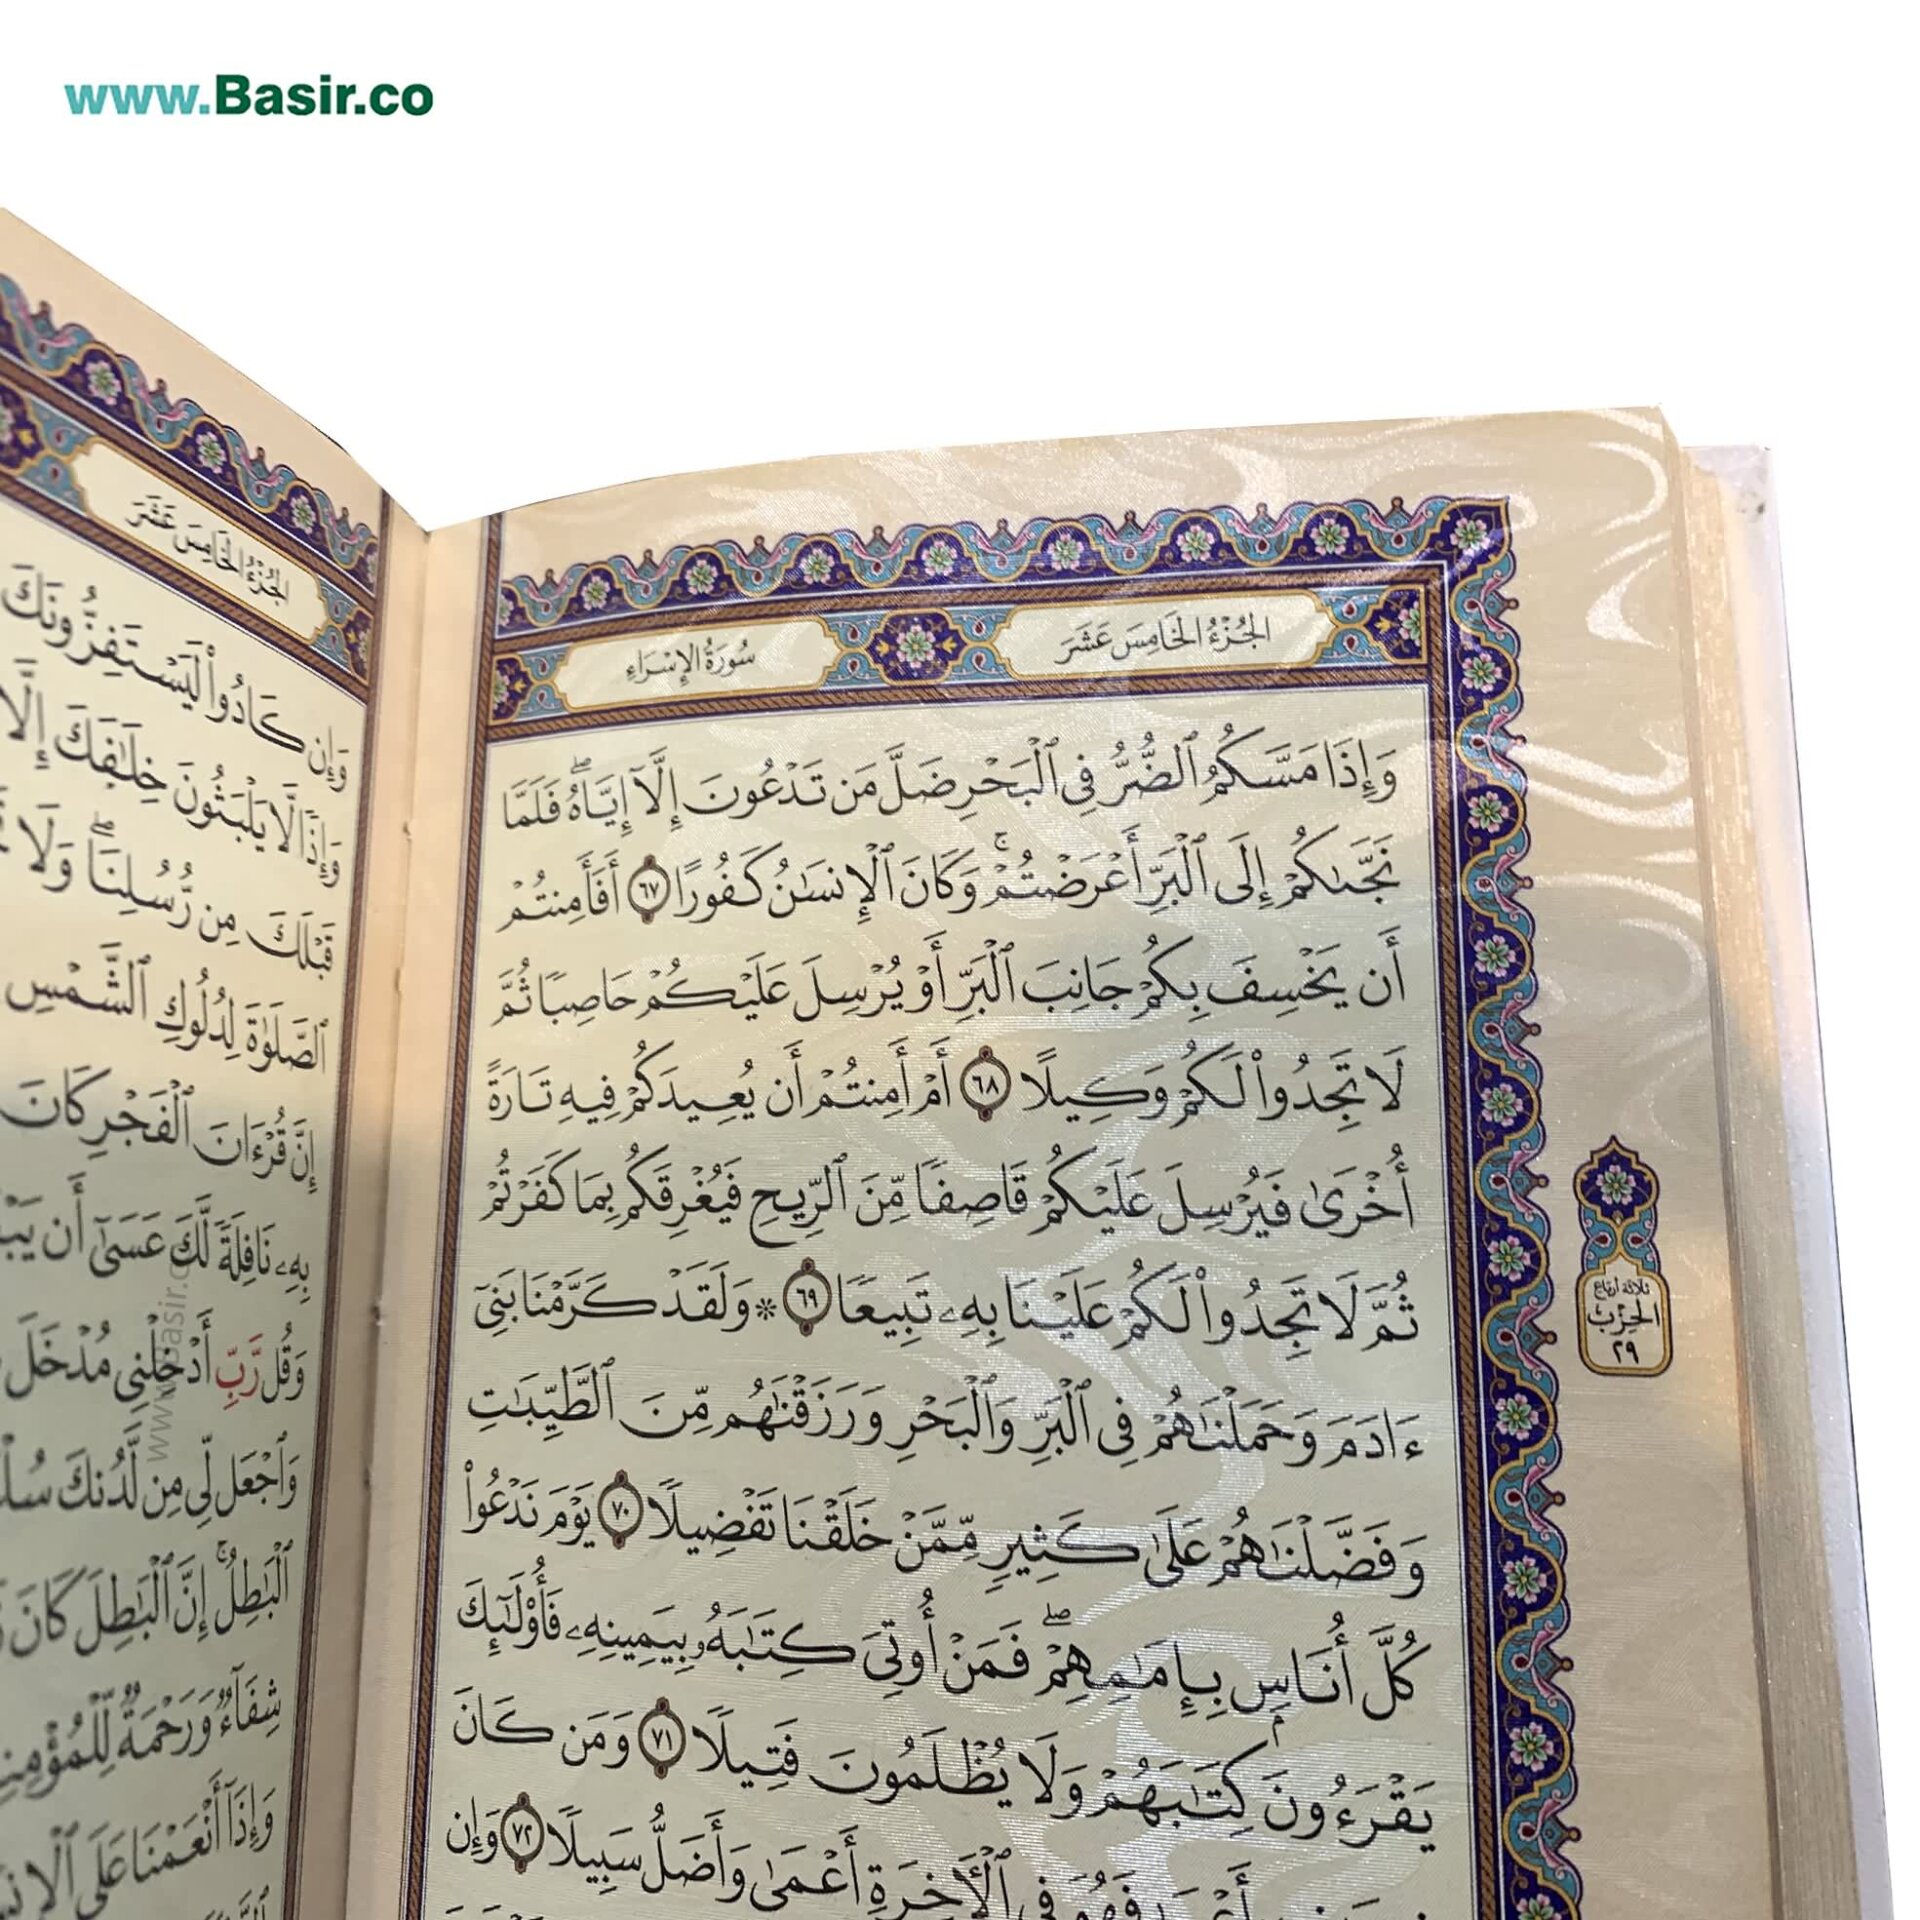 www.Basir.co
الجُزْءُ الخَامِسَ عَشَرَ
سُورَةُ الإِسْرَاءِ
وَإِذَا مَسَّكُمُ ٱلضُّرُّ فِي ٱلْبَحْرِ ضَلَّ مَن تَدْعُونَ إِلَّآ إِيَّاهُۖ فَلَمَّا
نَجَّىٰكُمْ إِلَى ٱلْبَرِّ أَعْرَضْتُمْۚ وَكَانَ ٱلْإِنسَٰنُ كَفُورًا ٦٧ أَفَأَمِنتُمْ
أَن يَخْسِفَ بِكُمْ جَانِبَ ٱلْبَرِّ أَوْ يُرْسِلَ عَلَيْكُمْ حَاصِبًا ثُمَّ
لَا تَجِدُوا۟ لَكُمْ وَكِيلًا ٦٨ أَمْ أَمِنتُمْ أَن يُعِيدَكُمْ فِيهِ تَارَةً
أُخْرَىٰ فَيُرْسِلَ عَلَيْكُمْ قَاصِفًا مِّنَ ٱلرِّيحِ فَيُغْرِقَكُم بِمَا كَفَرْتُمْ
ثُمَّ لَا تَجِدُوا۟ لَكُمْ عَلَيْنَا بِهِۦ تَبِيعًا ٦٩ * وَلَقَدْ كَرَّمْنَا بَنِىٓ
ءَادَمَ وَحَمَلْنَٰهُمْ فِي ٱلْبَرِّ وَٱلْبَحْرِ وَرَزَقْنَٰهُم مِّنَ ٱلطَّيِّبَٰتِ
وَفَضَّلْنَٰهُمْ عَلَىٰ كَثِيرٍ مِّمَّنْ خَلَقْنَا تَفْضِيلًا ٧٠ يَوْمَ نَدْعُوا۟
كُلَّ أُنَاسٍۭ بِإِمَٰمِهِمْۖ فَمَنْ أُوتِيَ كِتَٰبَهُۥ بِيَمِينِهِۦ فَأُو۟لَٰٓئِكَ
يَقْرَءُونَ كِتَٰبَهُمْ وَلَا يُظْلَمُونَ فَتِيلًا ٧١ وَمَن كَانَ
فِي ٱلْأٓخِرَةِ أَعْمَىٰ وَأَضَلُّ سَبِيلًا ٧٢ وَإِن
ثلاثة أرباع
الحِزْبُ
٢٩
الجُزْءُ الخَامِسَ عَشَرَ
وَإِن كَادُوا۟ لَيَسْتَفِزُّونَكَ
وَإِذًا لَّا يَلْبَثُونَ خِلَٰفَكَ إِلَّا
قَبْلَكَ مِن رُّسُلِنَاۖ وَلَا
ٱلصَّلَوٰةَ لِدُلُوكِ ٱلشَّمْسِ
إِنَّ قُرْءَانَ ٱلْفَجْرِ كَانَ
بِهِۦ نَافِلَةً لَّكَ عَسَىٰٓ أَن
وَقُل رَّبِّ أَدْخِلْنِي مُدْخَلَ
وَٱجْعَل لِّي مِن لَّدُنكَ
ٱلْبَٰطِلُۚ إِنَّ ٱلْبَٰطِلَ كَانَ
شِفَآءٌ وَرَحْمَةٌ
وَإِذَآ أَنْعَمْنَا عَلَى